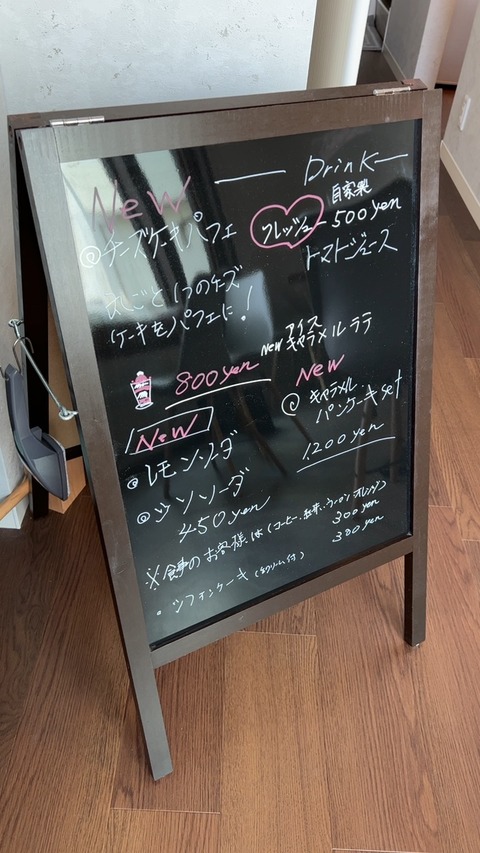 New
@チーズケーキパフェ
丸ごと1つのチーズ
ケーキをパフェに!
800yen
New
@レモンソーダ
@シソソーダ
450yen
Drink
自家製
フレッシュ 500yen
トマトジュース
New アイス
キャラメルラテ
New
@ キャラメル
パンケーキset
1200yen
※食事のお客様は(コーヒー、紅茶、ウーロン、オレンジ)
300yen
・シフォンケーキ(生クリーム付) 380yen